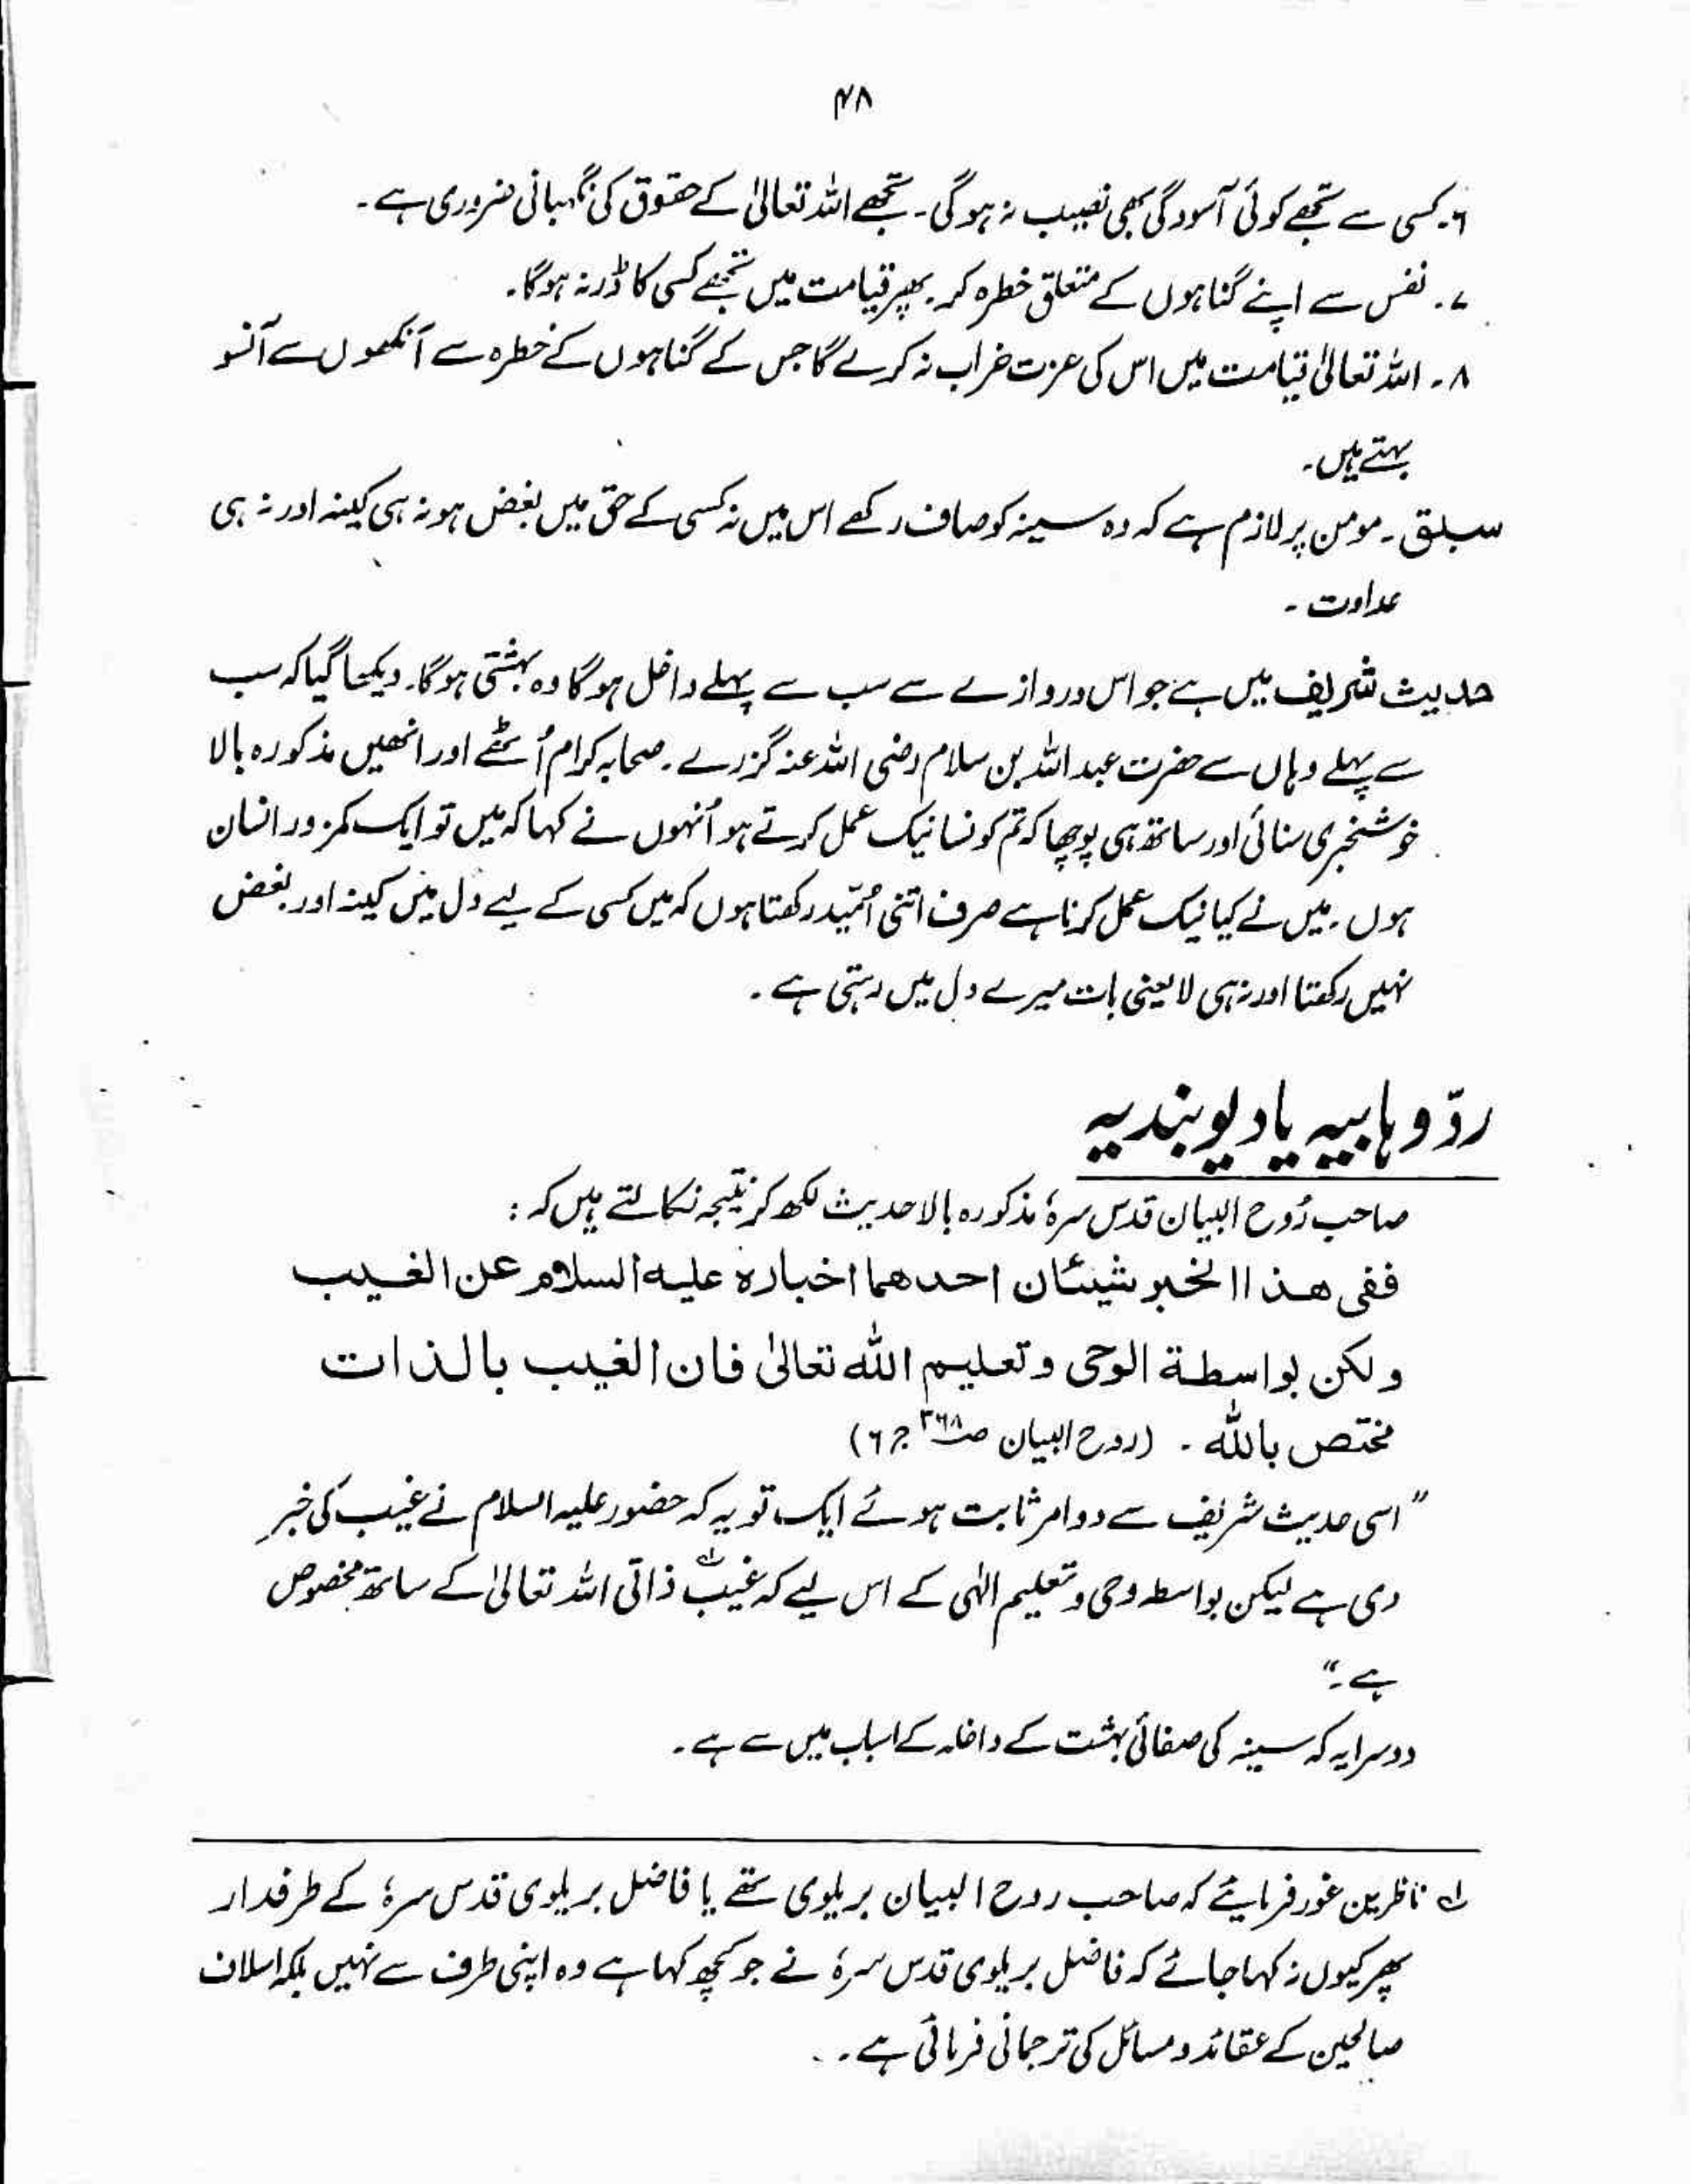 ۴۸
۶۔ کسی سے تجھے کوئی آسودگی بھی نصیب نہ ہوگی۔ تجھے اللہ تعالیٰ کے حقوق کی نگہبانی ضروری ہے۔
۷۔ نفس سے اپنے گناہوں کے متعلق خطرہ کر۔ پھر قیامت میں تجھے کسی کا ڈر نہ ہوگا۔
۸۔ اللہ تعالیٰ قیامت میں اس کی عزت خراب نہ کرے گا جس کے گناہوں کے خطرہ سے آنکھوں سے آنسو
بہتے ہیں۔
سبق۔ مومن پر لازم ہے کہ وہ سینہ کو صاف رکھے اس میں نہ کسی کے حق میں بغض ہو نہ ہی کینہ اور نہ ہی
عداوت۔
حدیث شریف میں ہے جو اس دروازے سے سب سے پہلے داخل ہوگا وہ بہشتی ہوگا۔ دیکھا گیا کہ سب
سے پہلے وہاں سے حضرت عبد اللہ بن سلام رضی اللہ عنہ گزرے۔ صحابہ کرام اُٹھے اور انھیں مذکورہ بالا
خوشخبری سنائی اور ساتھ ہی پوچھا کہ تم کونسا نیک عمل کرتے ہو اُنہوں نے کہا کہ میں تو ایک کمزور انسان
ہوں۔ میں نے کیا نیک عمل کرنا ہے صرف اتنی اُمّید رکھتا ہوں کہ میں کسی کے لیے دل میں کینہ اور بغض
نہیں رکھتا اور نہ ہی لا یعنی بات میرے دل میں رہتی ہے۔
ردّ وہابیہ یا دیوبندیہ
صاحب رُوح البیان قدس سرہٗ مذکورہ بالا حدیث لکھ کر نتیجہ نکالتے ہیں کہ :
ففی ھذا الخبر شیئان احدھما اخبارہ علیہ السلام عن الغیب
ولکن بواسطة الوحی وتعلیم اللہ تعالیٰ فان الغیب بالذات
مختص باللہ ۔ (روح البیان ص۳۶۸ ج ۶)
" اسی حدیث شریف سے دو امر ثابت ہوئے ایک تو یہ کہ حضور علیہ السلام نے غیب کی خبر
دی ہے لیکن بواسطہ وحی و تعلیم الٰہی کے اس لیے کہ غیب لہ ذاتی اللہ تعالیٰ کے ساتھ مخصوص
ہے۔"
دوسرا یہ کہ سینہ کی صفائی بہشت کے داخلہ کے اسباب میں سے ہے۔
لہ ناظرین غور فرمایئے کہ صاحب روح البیان بریلوی تھے یا فاضل بریلوی قدس سرہٗ کے طرفدار
پھر کیوں نہ کہا جائے کہ فاضل بریلوی قدس سرہٗ نے جو کچھ کہا ہے وہ اپنی طرف سے نہیں بلکہ اسلاف
صالحین کے عقائد و مسائل کی ترجمانی فرمائی ہے۔